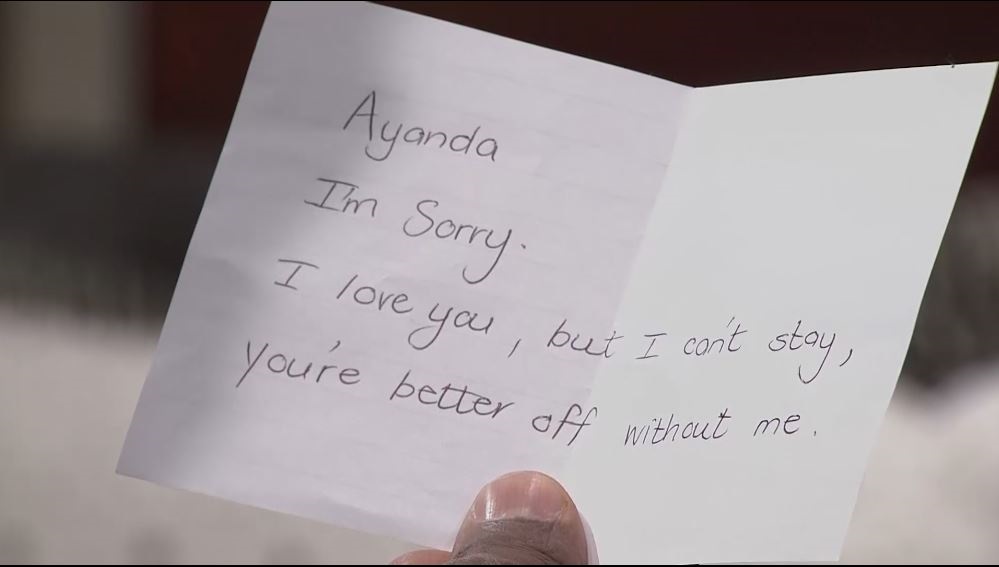 Ayanda
I'm Sorry.
I love you, but I can't stay,
you're better off without me.